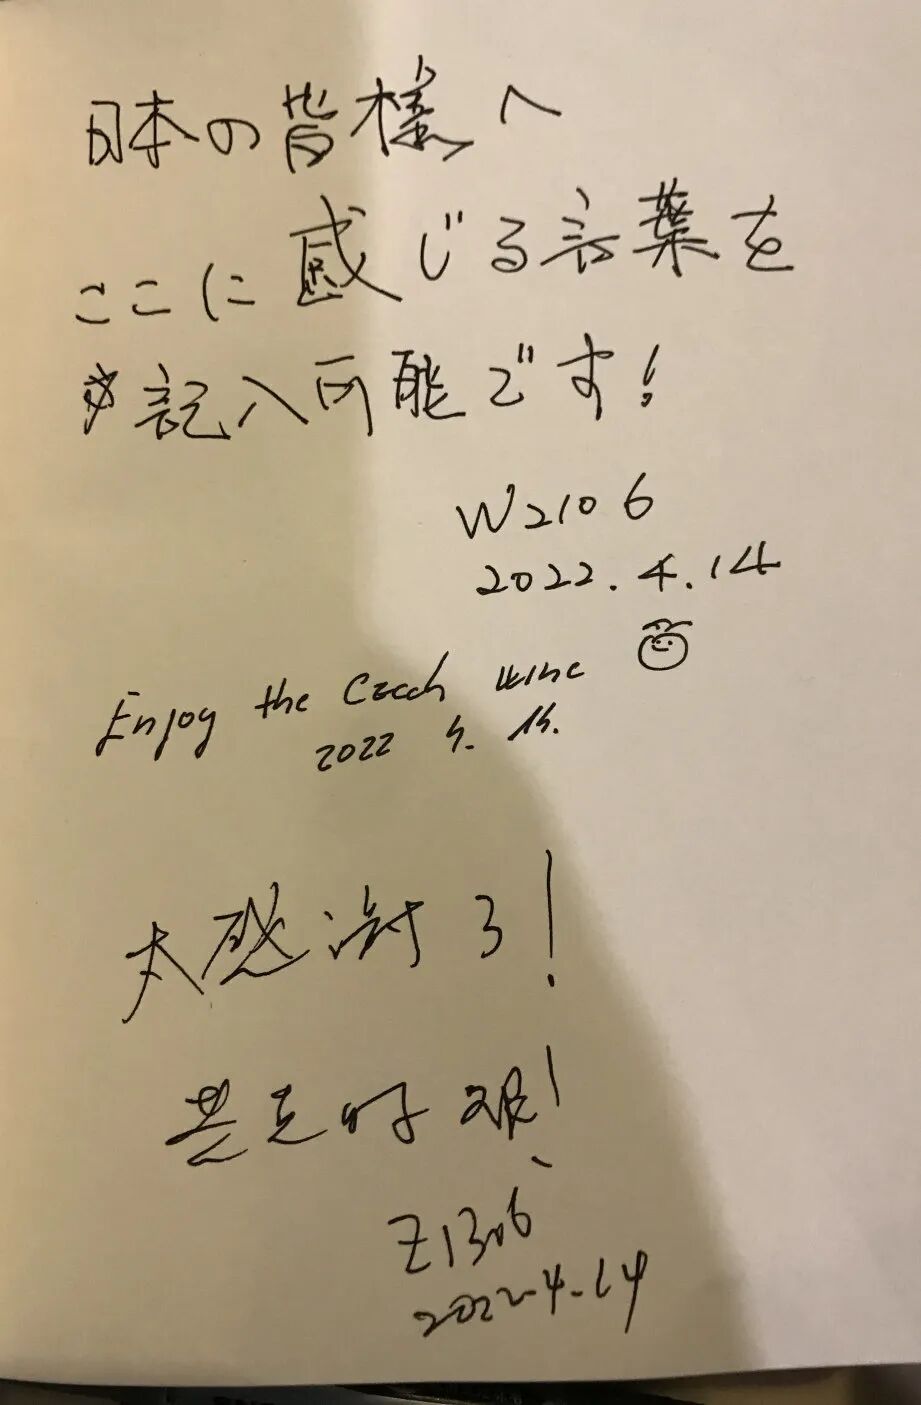 日本の皆様へ
ここに感じる言葉を
記入可能です!
W2106
2022.4.14
Enjoy the Czech wine
2022 4. 14.
太感谢了!
共克时艰!
Z1306
2022-4-14